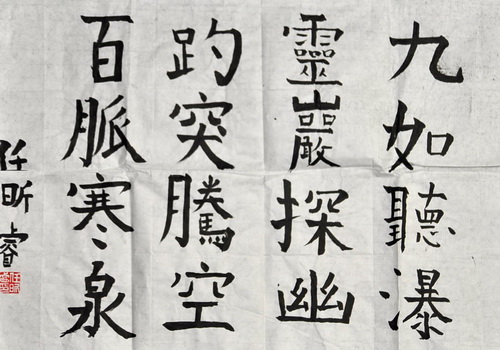 九如聽瀑
靈巖探幽
趵突騰空
百脈寒泉
任昕睿